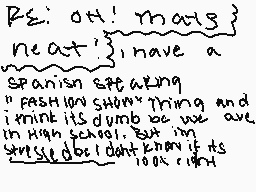 RE: OH! THATS
neat!, i have a
spanish speaking
"FASHION SHOW" Thing and
i think its dumb bc we are
in High school. But im
stressed bc I dont know if its
100% right